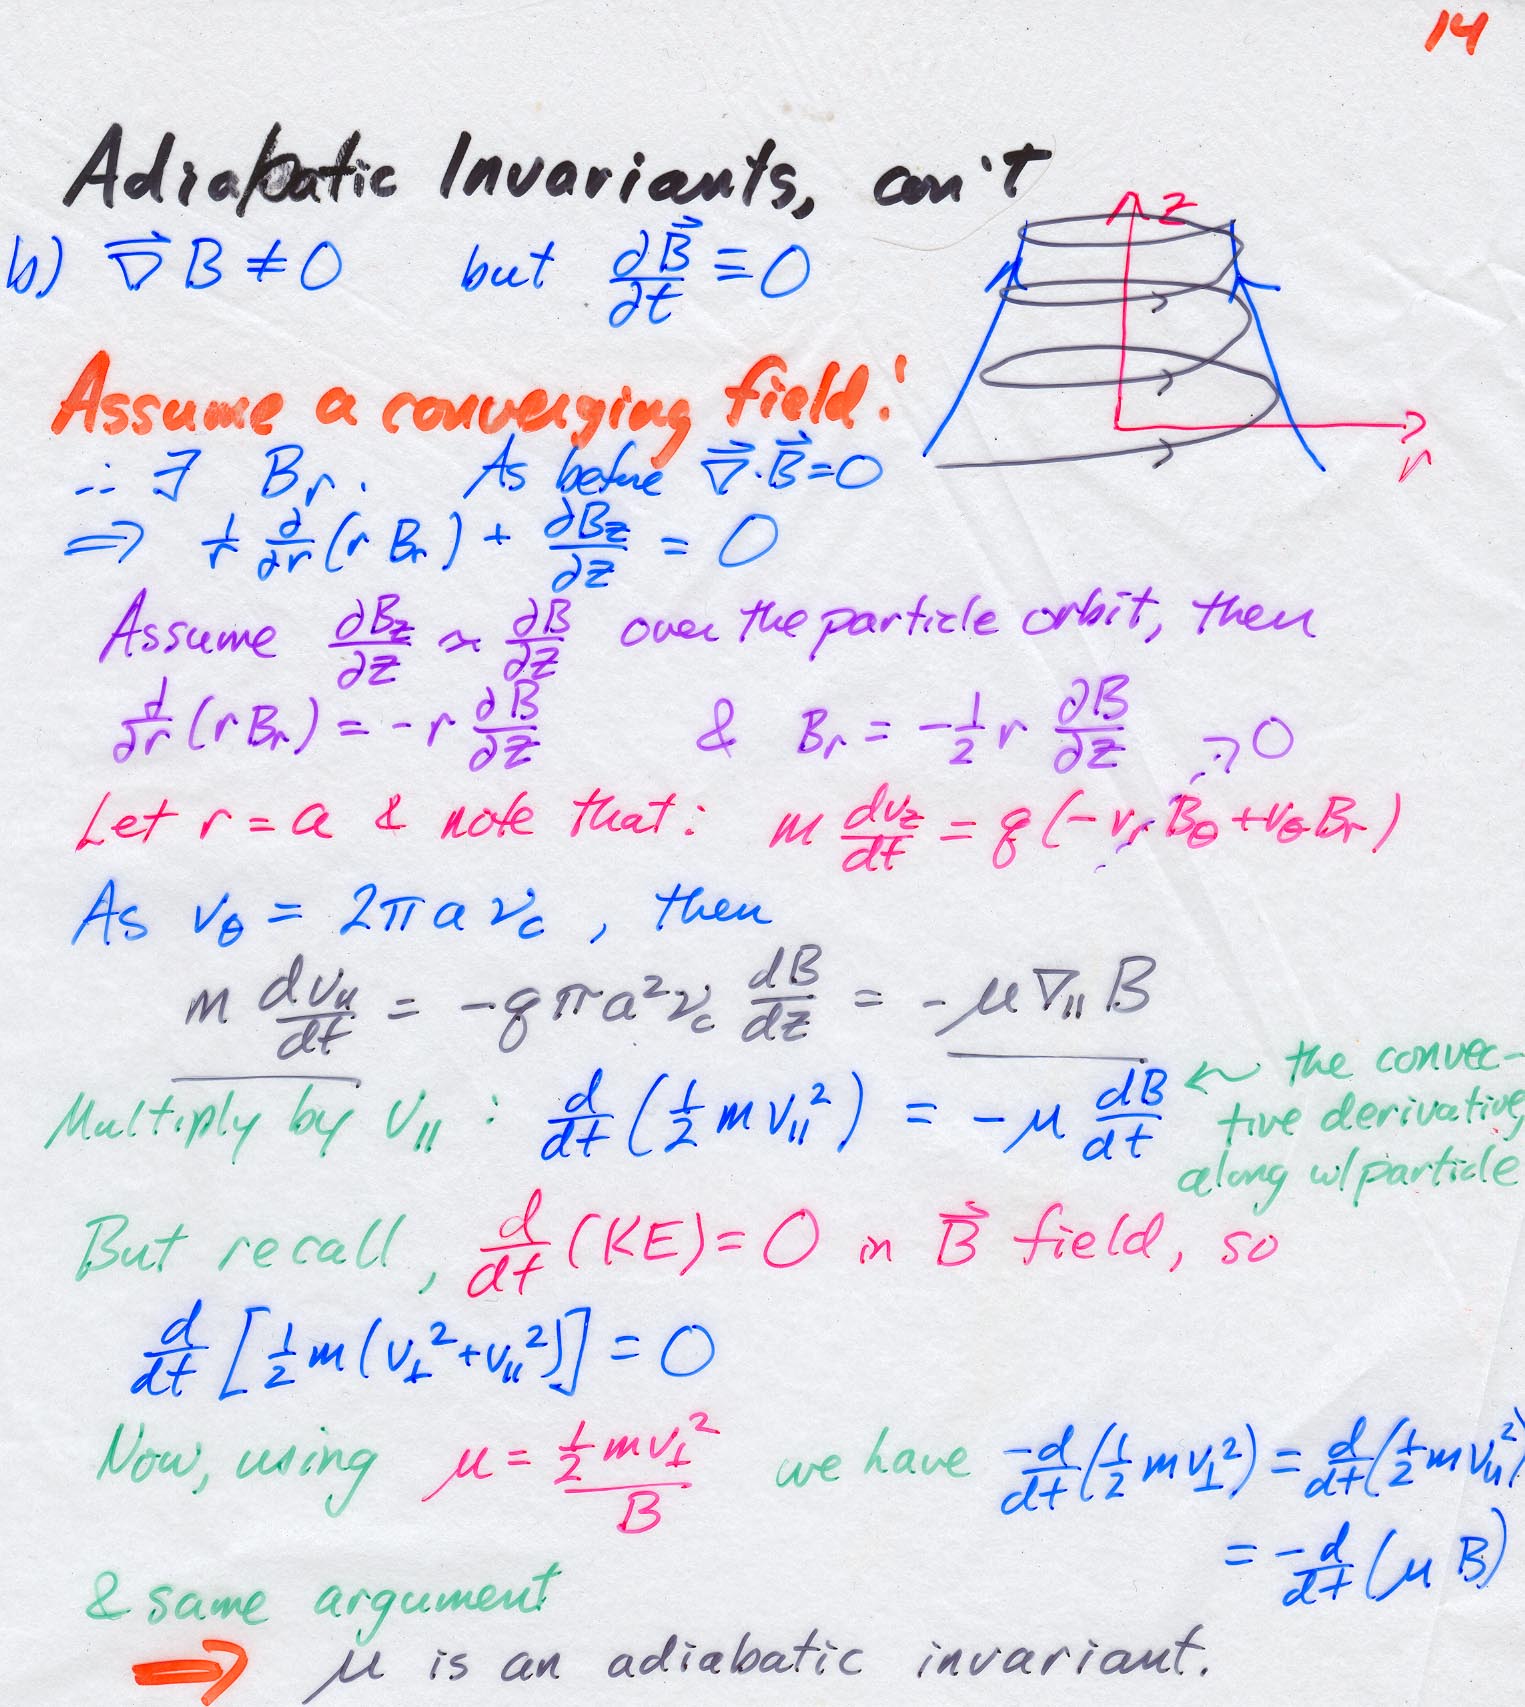 14
Adiabatic Invariants, con't
z
b) ∇⃗B ≠ 0 but ∂B⃗/∂t ≡ 0
Assume a converging field:
r
∴ ∃ Br. As before ∇⃗·B⃗=0
⇒ 1/r ∂/∂r (r Br) + ∂Bz/∂z = 0
Assume ∂Bz/∂z ~ ∂B/∂z over the particle orbit, then
∂/∂r (r Br) = -r ∂B/∂z & Br = -1/2 r ∂B/∂z
Let r = a & note that: m dvz/dt = q(-vr Bθ + vθ Br) →0
As vθ = 2πa νc, then
m dv∥/dt = -qπa²νc dB/dz = -μ∇∥B
Multiply by v∥ : d/dt (1/2 m v∥²) = -μ dB/dt ← the convec-
tive derivative,
along w/particle
But recall, d/dt (KE) = 0 in B⃗ field, so
d/dt [1/2 m (v⊥² + v∥²)] = 0
Now, using μ = 1/2 mv⊥² / B we have -d/dt (1/2 m v⊥²) = d/dt (1/2 m v∥²)
= -d/dt (μ B)
& same argument
⇒ μ is an adiabatic invariant.